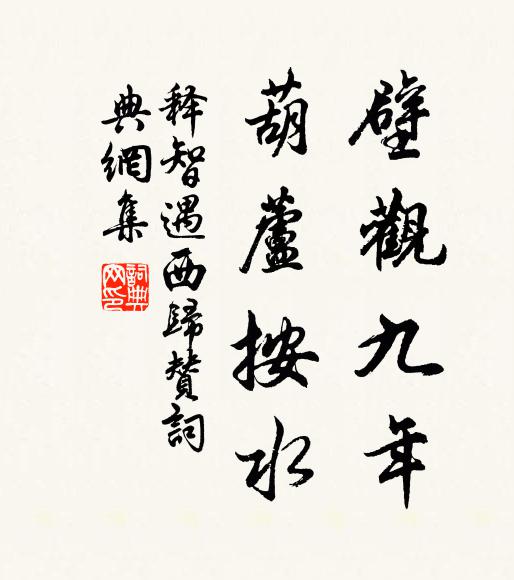 壁觀九年
葫蘆按水
释智遇西歸贊詞
典網集
詞典网印